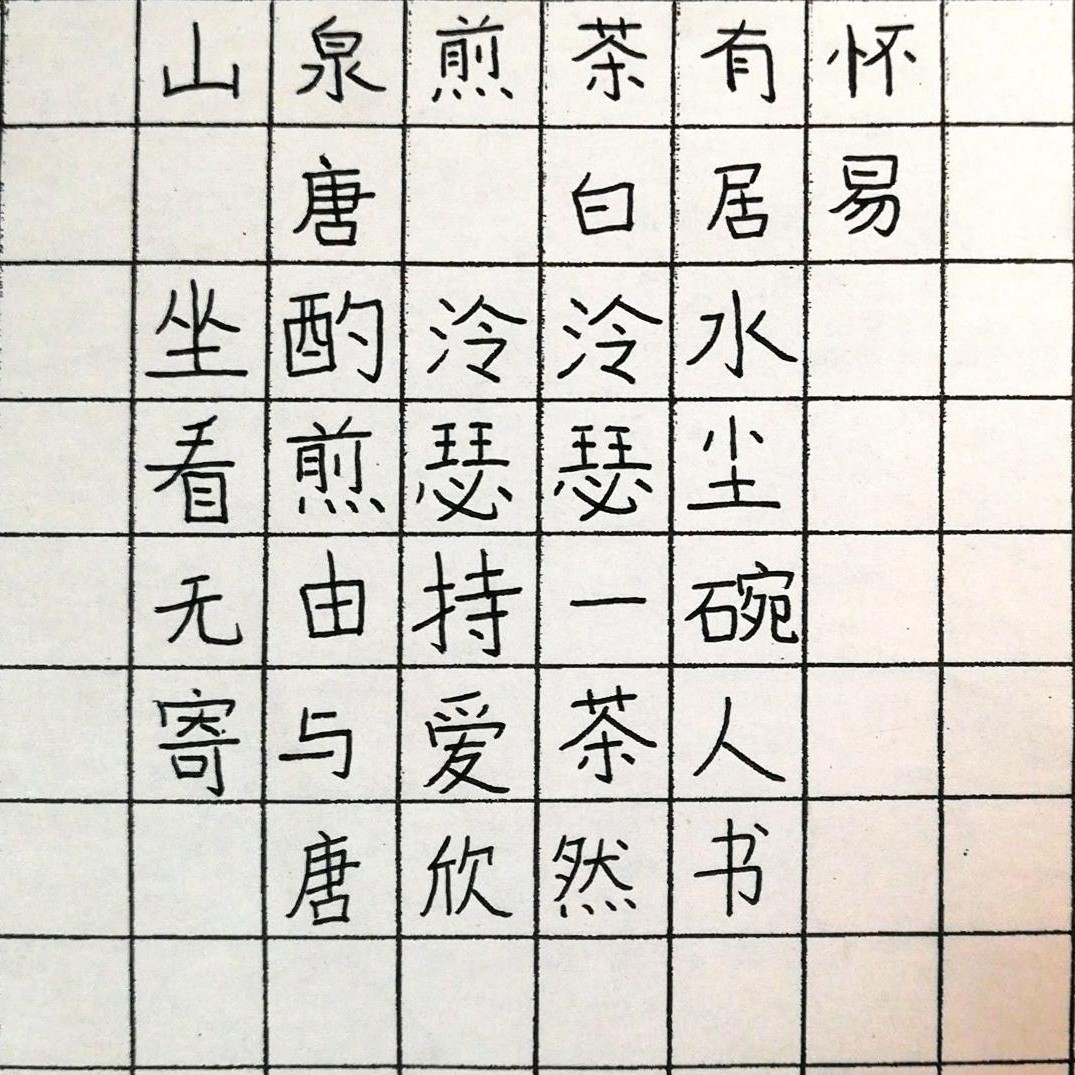 山泉煎茶有怀
唐 白居易
坐酌泠泠水
看煎瑟瑟尘
无由持一碗
寄与爱茶人
唐欣然书